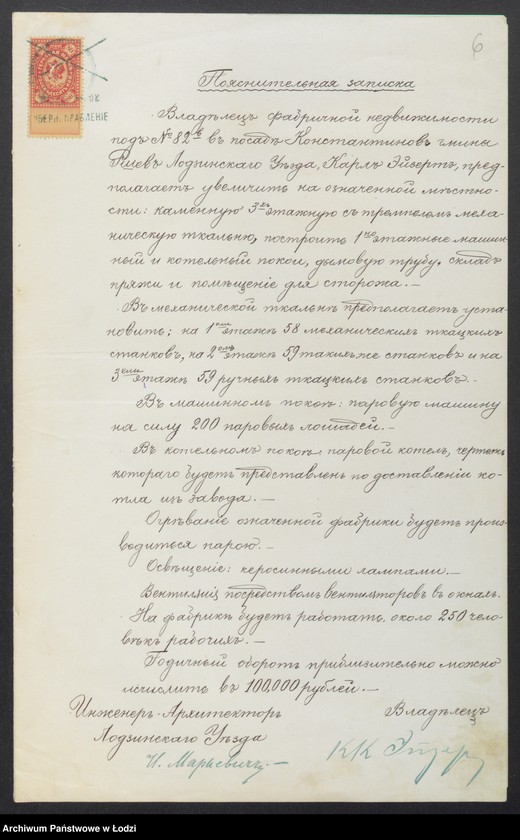 6
Пояснительная записка
Владѣлецъ фабричной недвижимости
подъ № 82 в въ посадѣ Константиновѣ гмины
Лодзинскаго Уѣзда, Карлъ Эйзертъ, пред-
полагаетъ увеличить на означенной мѣстно-
сти: каменную 3хъ этажную съ тремпелемъ меха-
ническую ткальню, построить 1но этажные машин-
ный и котельный покои, дымовую трубу, складъ
пряжи и помѣщеніе для сторожа. —
Въ механической ткальнѣ предполагаетъ уста-
новить: на 1омъ этажѣ 58 механическихъ ткацкихъ
станковъ, на 2омъ этажѣ 59 такихъ же станковъ и на
3емъ этажѣ 59 ручныхъ ткацкихъ станковъ. —
Въ машинномъ покоѣ: паровую машину
на силу 200 паровыхъ лошадей. —
Въ котельномъ покоѣ паровой котелъ, чертежъ
котораго будетъ представленъ по доставленіи ко-
тла изъ завода. —
Огрѣваніе означенной фабрики будетъ произ-
водиться парою. —
Освѣщеніе: керосинными лампами. —
посредствомъ вентиляторовъ въ окнахъ.
На фабрикѣ будетъ работать около 250 чело-
вѣкъ рабочихъ. —
Годичный оборотъ приблизительно можно
исчислить въ 100,000 рублей. —
Инженеръ-Архитекторъ
Лодзинскаго Уѣзда
Владѣлецъ
Archiwum Państwowe w Łodzi